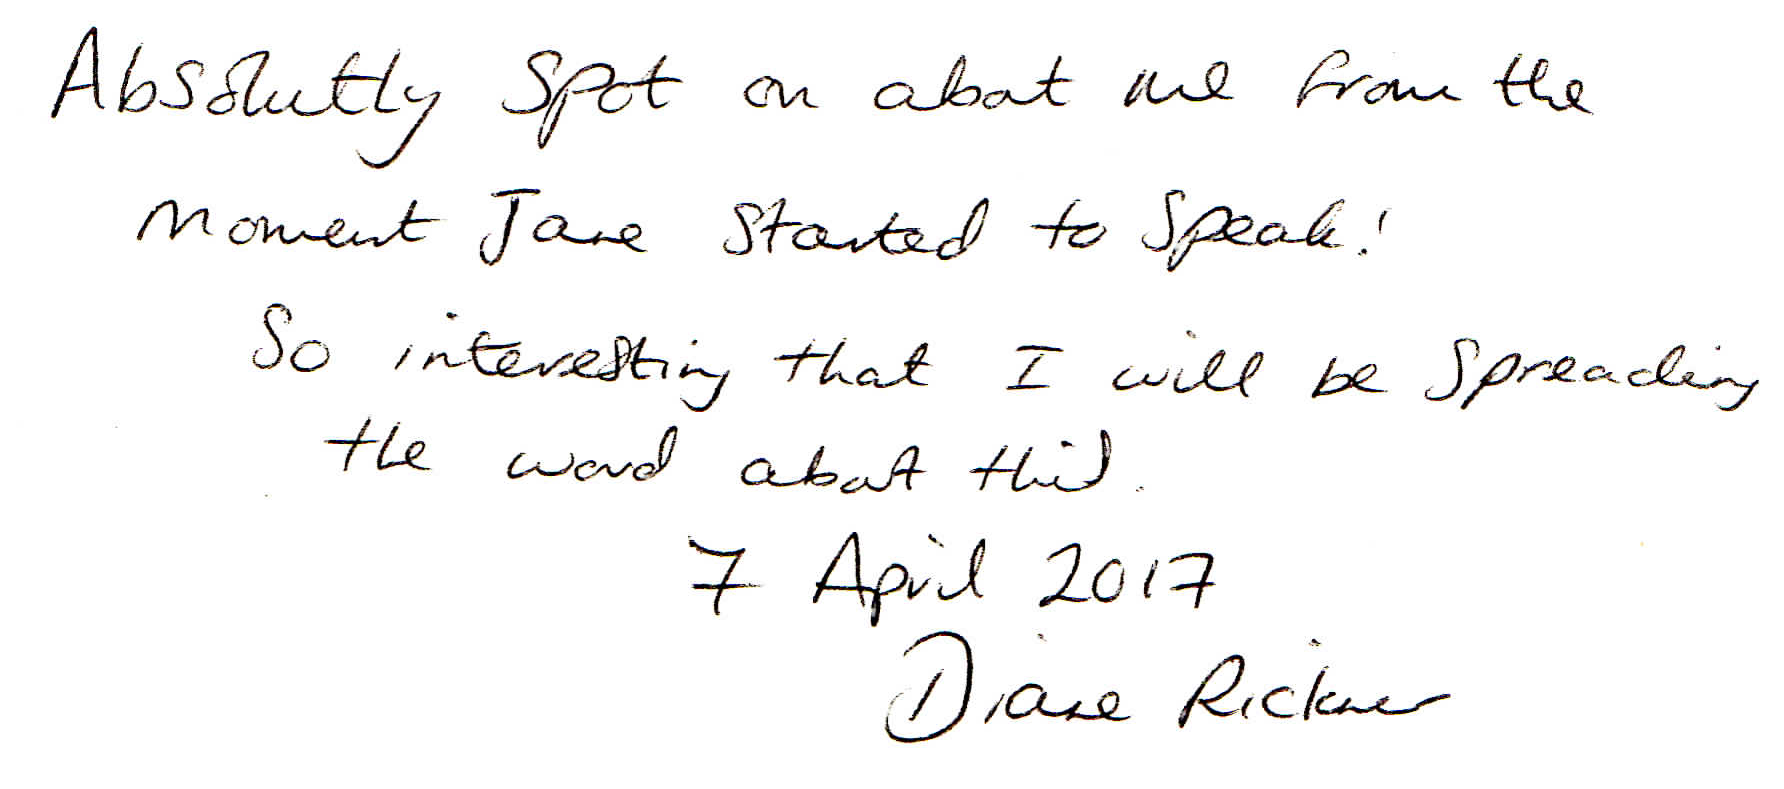 Absolutly spot on about me from the
moment Jane started to speak!
So interesting that I will be spreading
the word about this.
7 April 2017
Diane Rickner